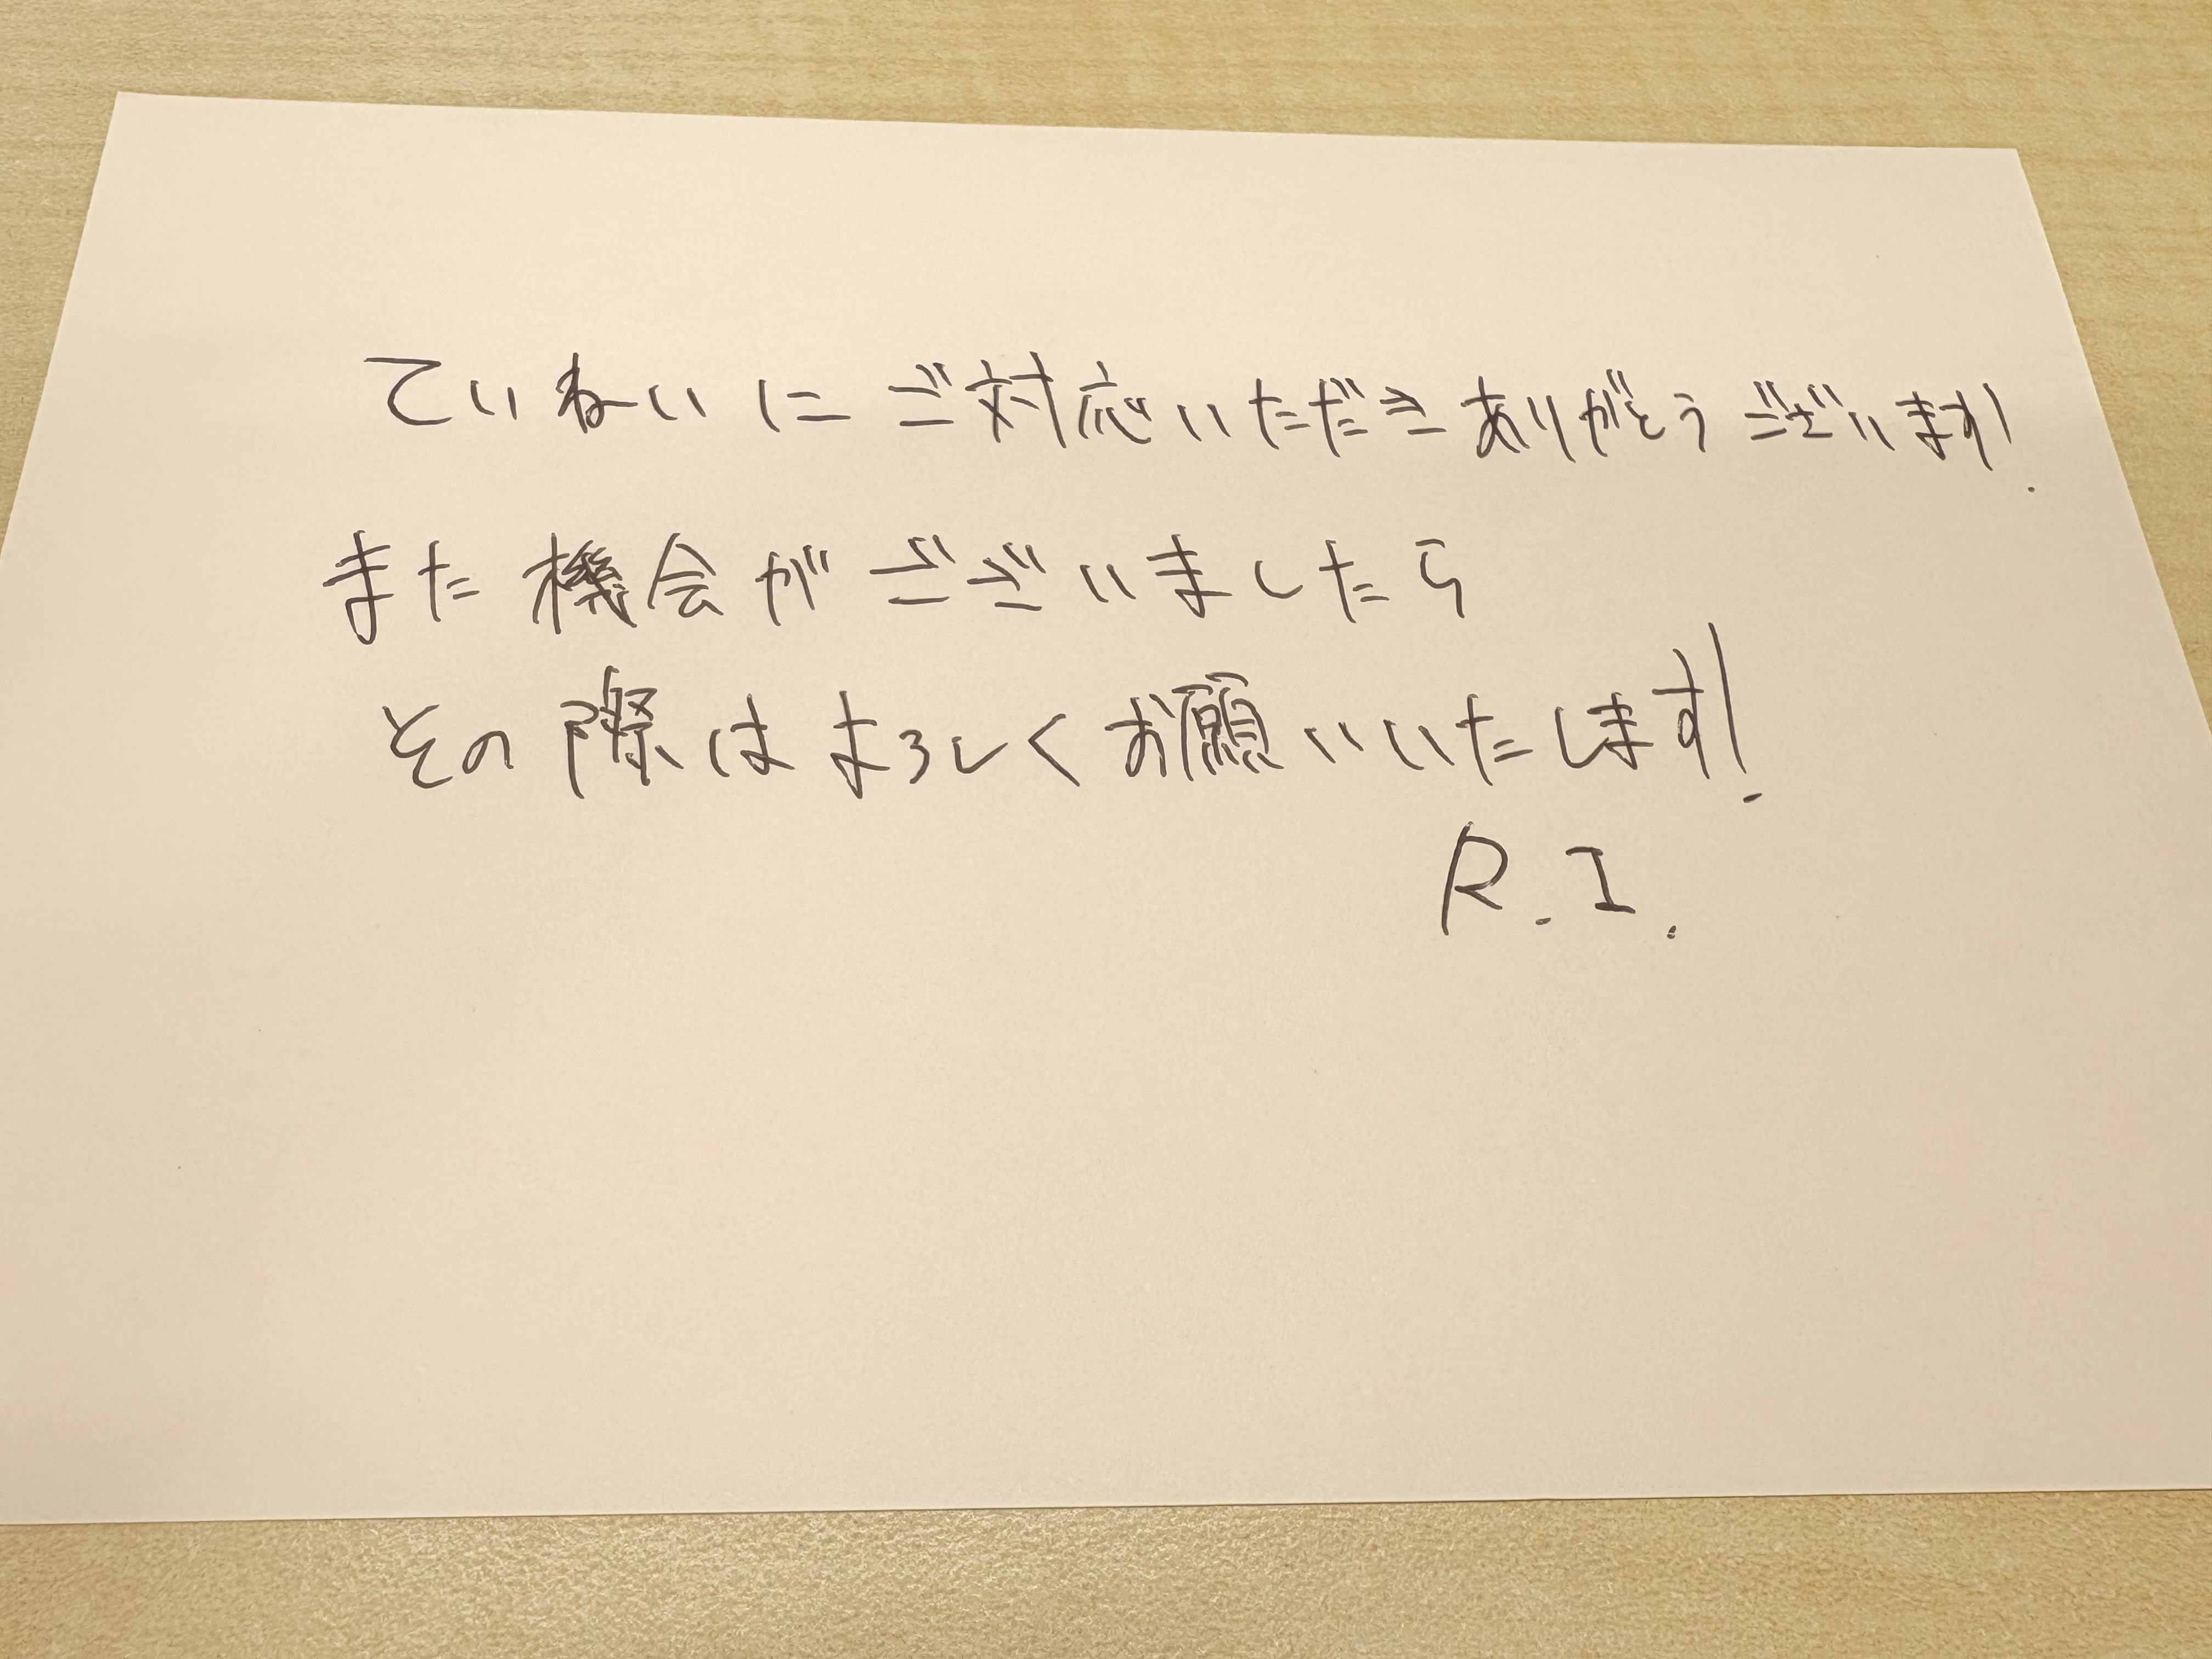 ていねいにご対応いただきありがとうございます!
また機会がございましたら
その際はよろしくお願いいたします!
R.I.